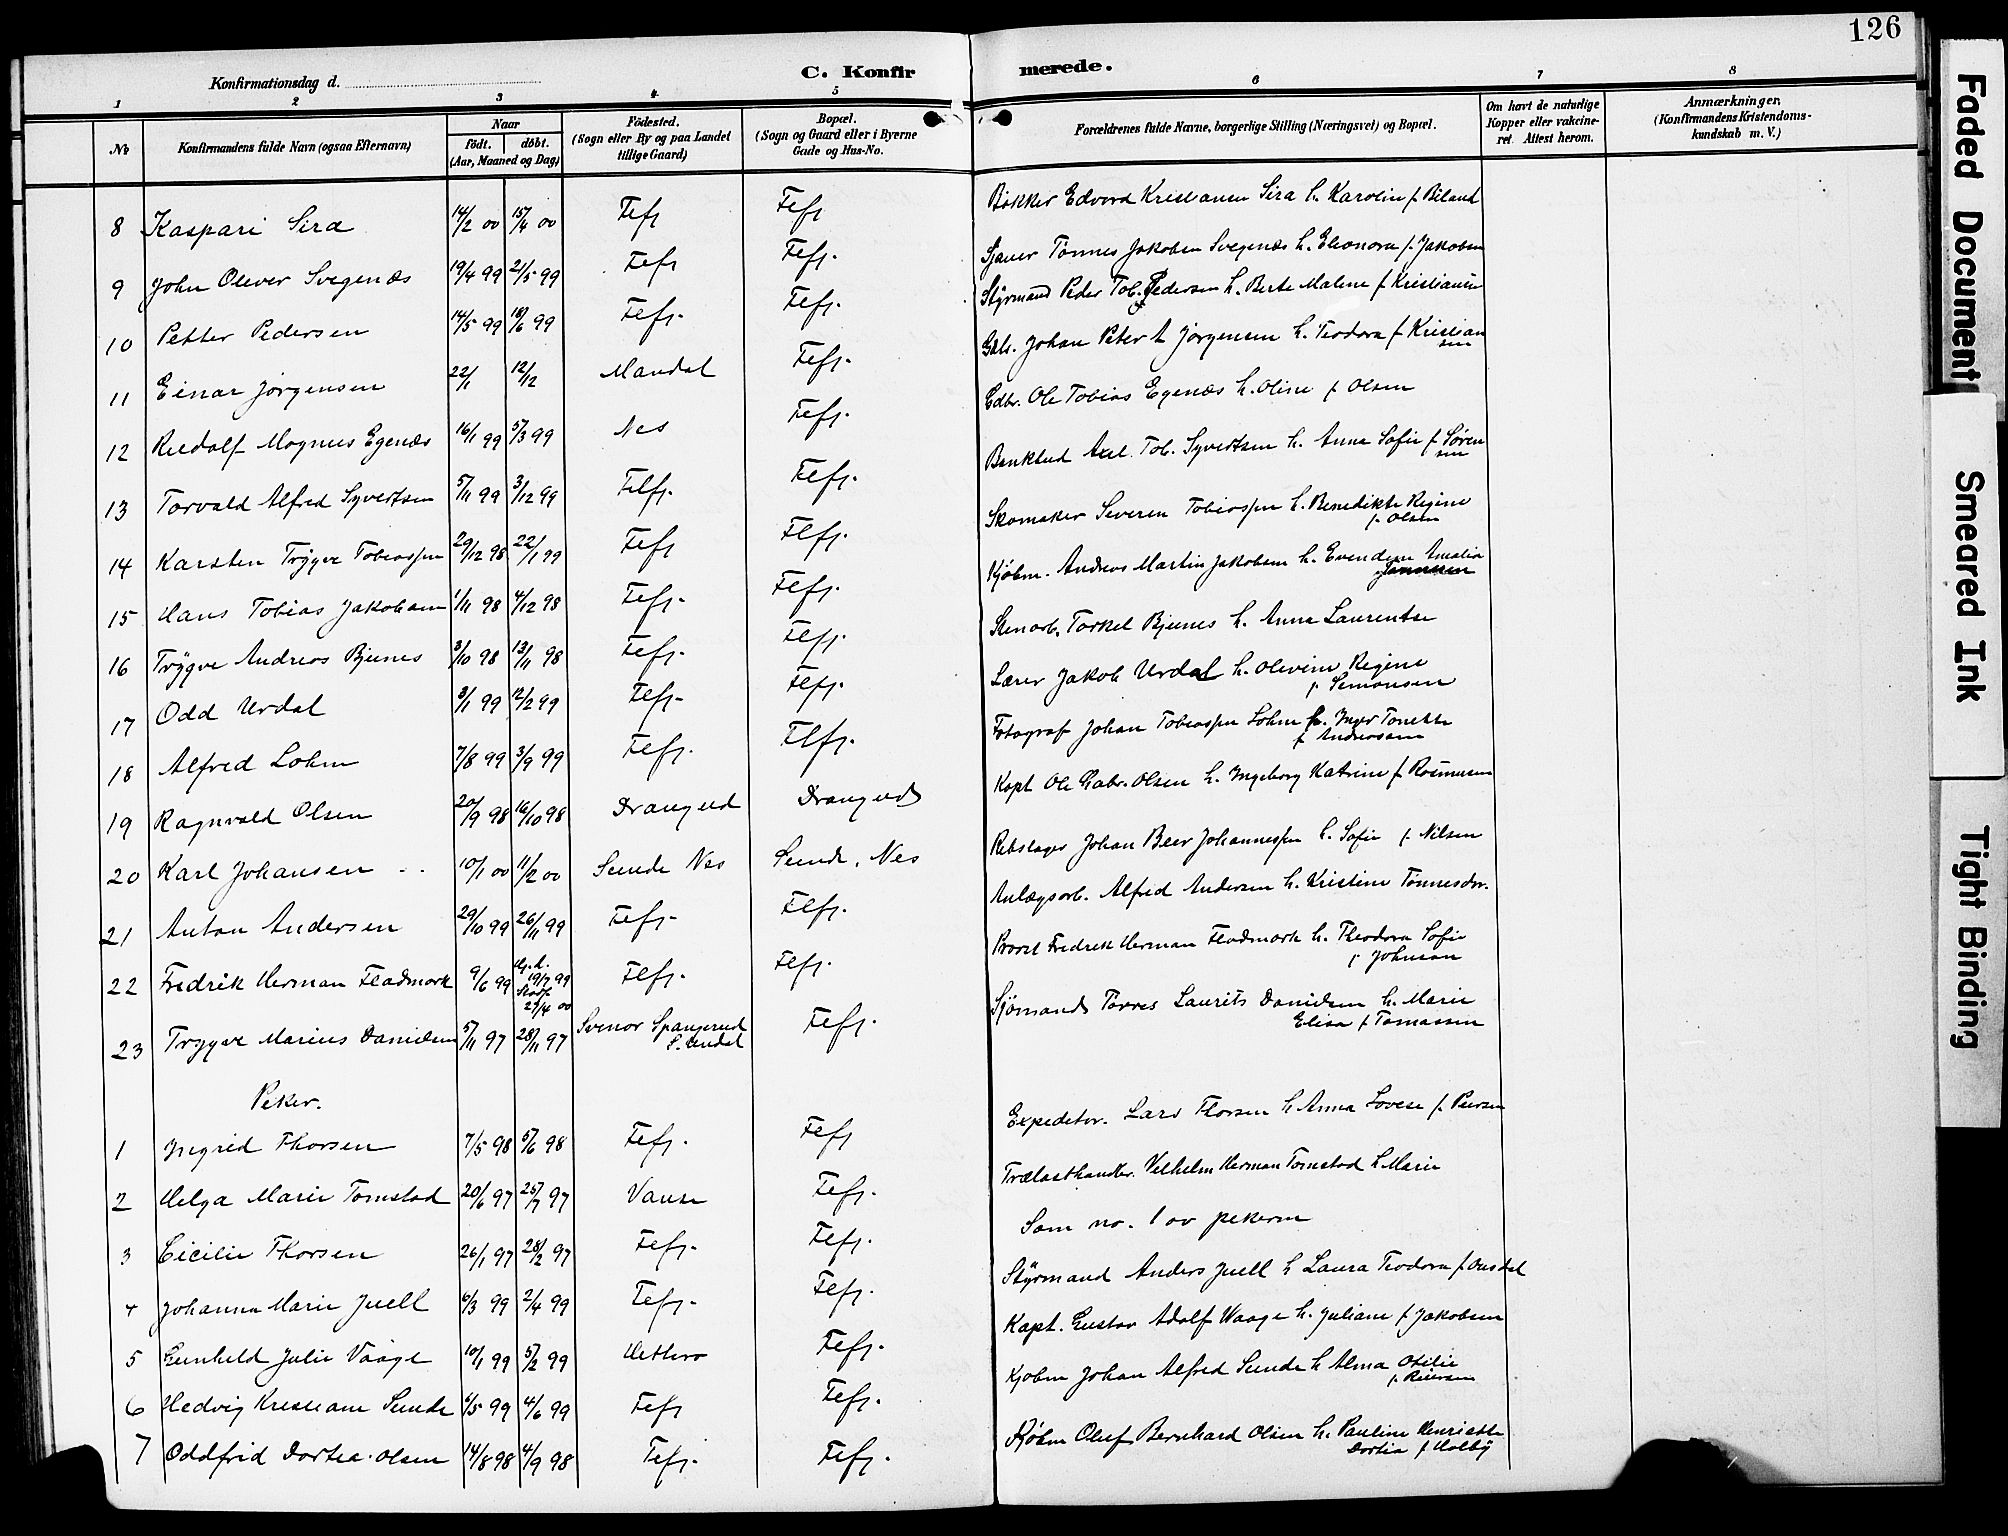 126
Konfirmationsdag d.
C. Konfir
merede.
1 2 3 4 5 6 7 8
No
Konfirmandens fulde Navn (ogsaa Efternavn)
Naar
født. døbt.
(Aar, Maaned og Dag)
Fødested.
(Sogn eller By og paa Landet
tillige Gaard)
Bopæl.
(Sogn og Gaard eller i Byerne
Gade og Hus-No.
Forældrenes fulde Navne, borgerlige Stilling (Næringsvei) og Bopæl.
Om havt de naturlige
Kopper eller vakcine-
ret. Attest herom.
Anmærkninger.
(Konfirmandens Kristendoms-
kundskab m. V.)
8 Kaspari Sira 14/2 00 15/4 00 Fefj Fefj Bøkker Edvard Kristiansen Sira h. Karolin f. Biland
9 John Oliver Svegenæs 19/4 99 21/5 99 Fefj Fefj. Sjauer Tønnes Jakobsen Svegenæs h. Elionora f. Jakobsen
10 Petter Pedersen 14/5 99 18/6 99 Fefj. Fefj. Styrmand Peder Tob. Pedersen h. Berte Malene f Kristiansen
11 Einar Jørgensen 22/1 12/12 Mandal Fefj. Johan Peter A Jørgensen h. Teodora f Kristian
sen
12 Rudolf Magnus Egenæs 16/1 99 5/3 99 Nes Fefj. Gdbr. Ole Tobias Egenæs h. Oline f Olsen
13 Torvald Alfred Syvertsen 5/11 99 3/12 99 Flfj. Flfj. Bankbud Axel Tob. Syvertsen h. Anna Sofie f Søren
sen
14 Karsten Trygve Tobiassen 29/12 98 22/1 99 Fefj Flfj. Skomaker Severin Tobiassen h. Benedikte Regine
f. Olsen
15 Hans Tobias Jakobsen 1/11 98 4/12 98 Fefj. Flfj. Kjøbm. Andreas Martin Jakobsen h. Evendine Amalia
16 Trygve Andreas Bjunes 3/10 98 13/11 98 Fefj. Flfj. Stenarb. Torkel Bjunes h. Anna Laurentse
17 Odd Urdal 3/1 99 12/2 99 Flfj. Flfj. Lærer Jakob Urdal h. Olivine Regine
f. Simonsen
18 Alfred Lohm 7/8 99 3/9 99 Fefj. Flfj. Fotograf Johan Tobiassen Lohm h. Inger Tonette
f Andreasen
19 Ragnvald Olsen 20/9 98 16/10 98 Drangeid Drangeid Kapt Ole Gabr. Olsen h. Ingeborg Katrine f. Rasmusen
20 Karl Johansen - - 10/1 00 11/2 00 Sunde Nes Sunde, Nes Rebslager Johan Beer Johannessen h. Sofie f. Nilsen
21 Anton Andersen 29/10 99 26/11 99 Fefj. Flfj. Anlægsarb. Alfred Andersen h. Kristine Tønnesdtr.
22 Fredrik Herman Fladmark 9/6 99 Hj. d.
19/7 99
Stadf
29/4 00 Flfj. Flfj. Provst Fredrik Herman Fladmark h. Theodora Sofie
f Johnson
23 Trygve Marius Danielsen 5/11 97 28/11 97 Svinør Spangerud
S. Undal Fefj. Sjømand Torres Laurits Danielsen h. Marie
Elisa f Tomassen
Piker.
1 Ingrid Thorsen 7/5 98 5/6 98 Fefj. Fefj Expeditør. Lars Thorsen h Anna Lovise f. Peersen
2 Helga Marie Tomstad 20/6 97 25/7 97 Vanse Fefj. Trælasthandler. Vilhelm Herman Tomstad h Marie
3 Cicilie Thorsen 26/1 97 28/2 97 Fefj. Fefj. Som no. 1 av pikerne
4 Johanna Marie Juell 6/3 99 2/4 99 Fefj. Fefj. Styrmand Anders Juell h Laura Teodora f. Ousdal
5 Gunhild Julie Vaage 10/1 99 5/2 99 Hitterø Fefj. Kapt. Gustav Adolf Waage h. Juliane f Jakobsen
6 Hedvig Kristiane Sunde 6/5 99 4/6 99 Fefj Fefj. Kjøbm Johan Alfred Sunde h Alma Otilie
f. Reiersen
7 Oddfrid Dortea Olsen 14/8 98 4/9 98 Fefj. Fefj. Kjøbm Oluf Bernhard Olsen h. Pauline Henriette
Dortia f Holby
Faded Document
Smeared Ink
Tight Binding